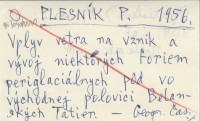 PLESNÍK P. 1956.
Vplyv vetra na vznik a
vývoj niektorých foriem
periglaciálnych pôd vo
východnej polovici Belan-
ských Tatier. — Geogr. Čas.